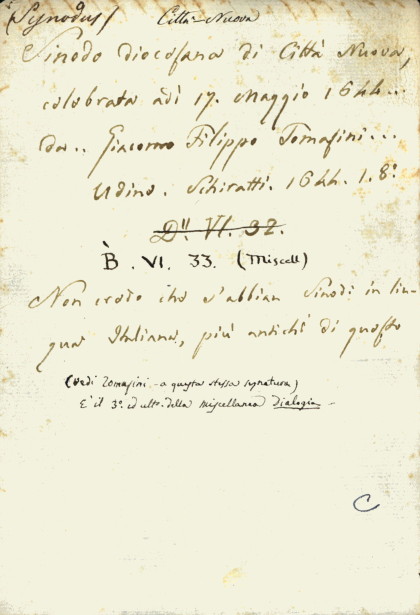 (Synodus) Città-Nuova
Sinodo diocesana di Città Nuova,
celebrata adì 17. Maggio 1644...
da.. Giacomo Filippo Tomasini...
Udine. Schiratti. 1644. 1. 8.º
D'' VI. 32.
B. VI. 33. (Miscell)
Non credo che s'abbian Sinodi in lin-
gua Italiana, più antichi di questo
(vedi Tomasini - a questa stessa segnatura)
E' il 3º. ed ulto. della miscellanea Dialogia -
C